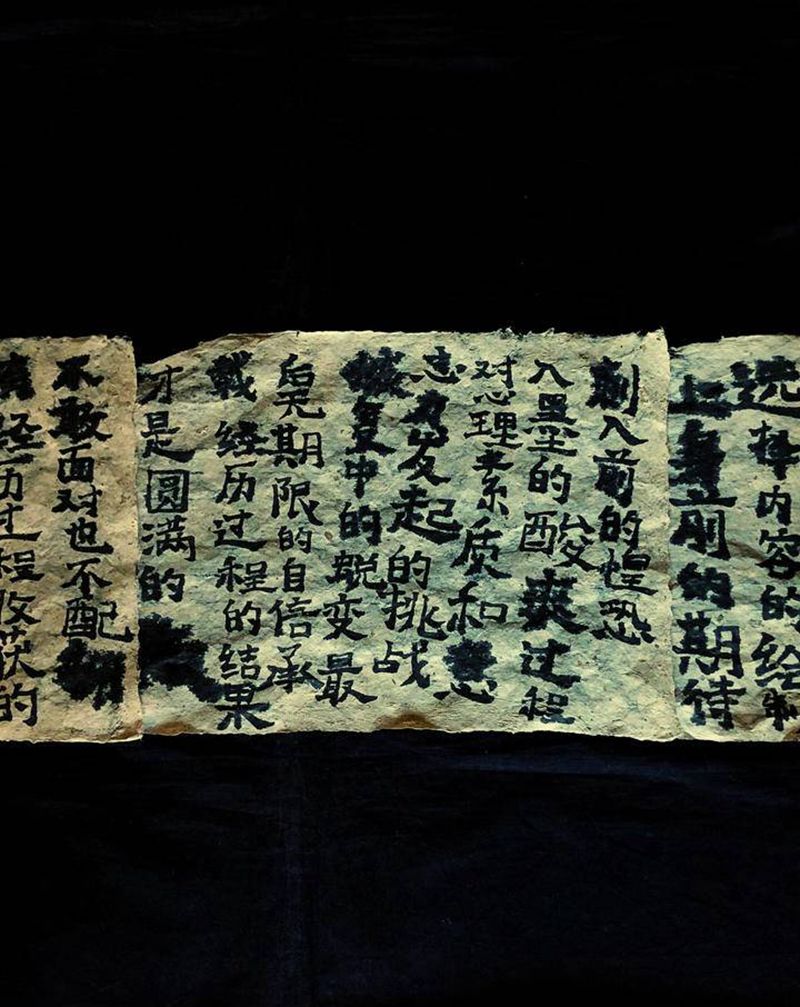 选择内容的绘制
上身前的期待
刺入前的惶恐
入墨的酸爽过程
对心理素质和意
志力发起的挑战
恢复中的蜕变最
后无期限的自信承
载经历过程的结果
才是圆满的
不敢面对也不配
经历过程收获的